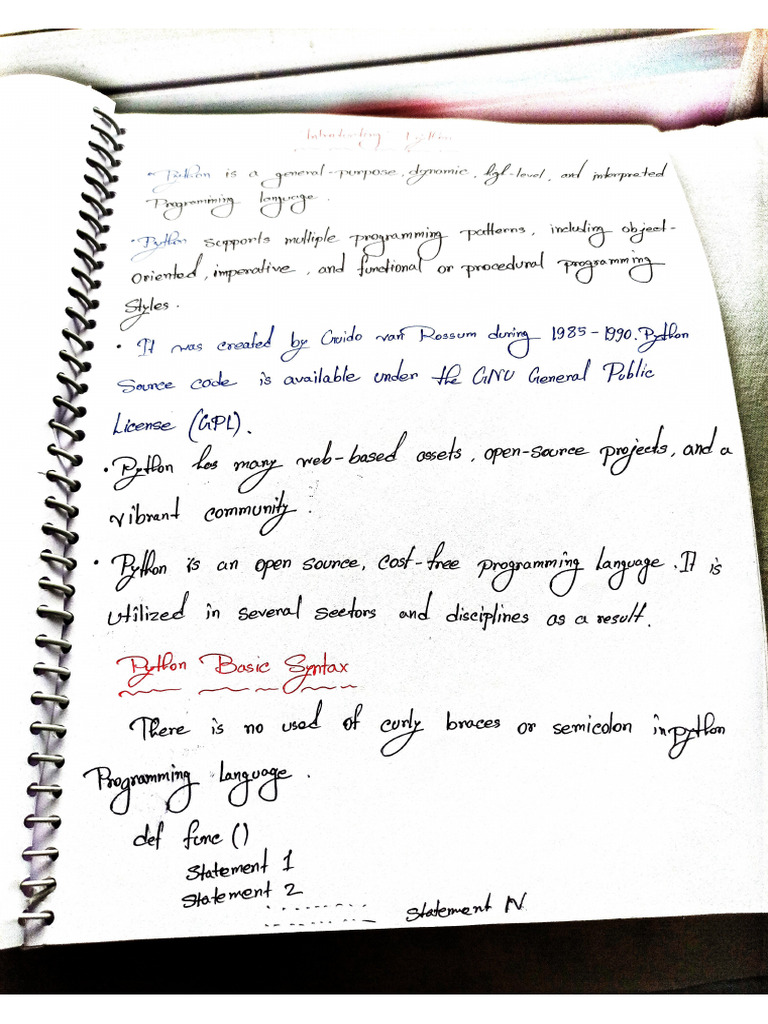 Python
• Python is a general-purpose, dynamic, high-level, and interpreted
Programming language.
• Python supports multiple programming patterns, including object-
Oriented, imperative, and functional or procedural programming
Styles.
• It was created by Guido van Rossum during 1985-1990. Python
Source code is available under the GNU General Public
License (GPL).
• Python has many web-based assets, open-source projects, and a
vibrant community.
• Python is an open source, cost-free programming language. It is
utilized in several sectors and disciplines as a result.
Python Basic Syntax
There is no used of curly braces or semicolon in python
Programming language.
def func ()
Statement 1
Statement 2
Statement N